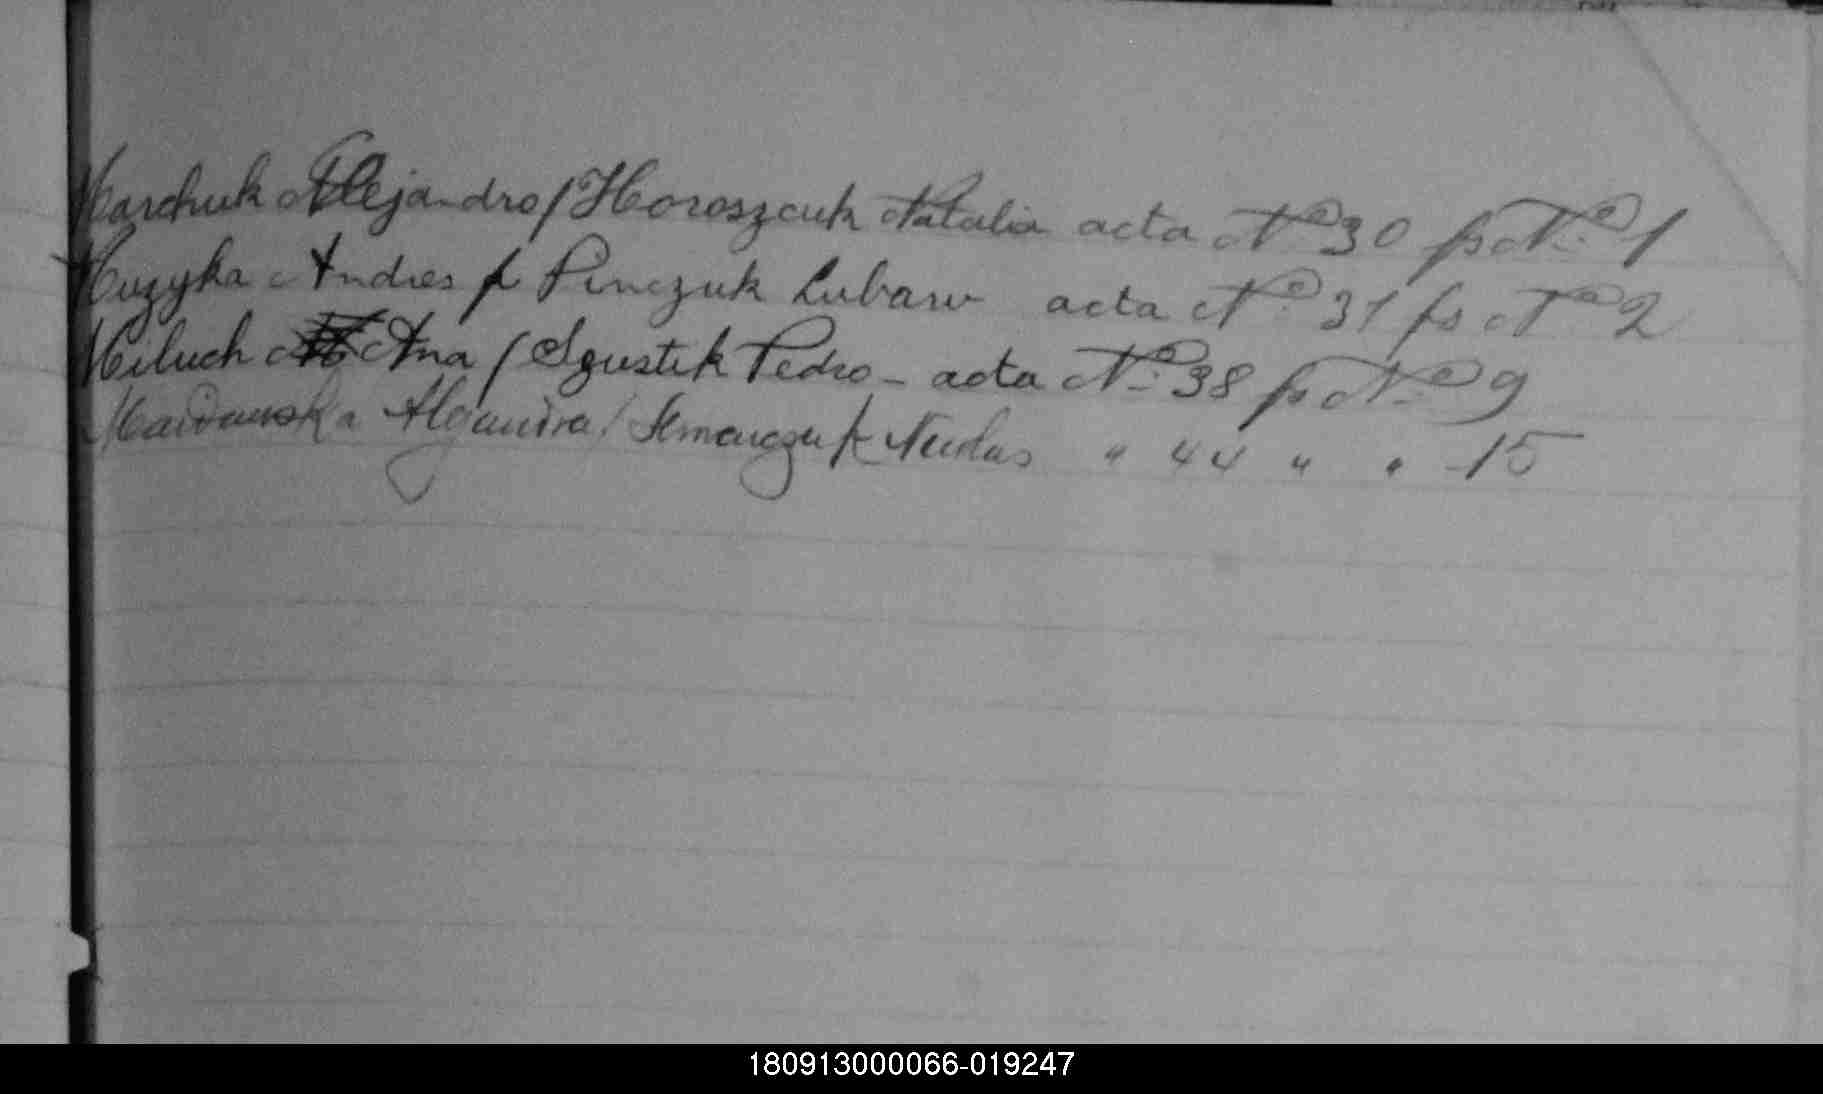 Marchuk Alejandro / Horoszcuk Natalia acta Nº 30 fs Nº 1
Muzyka Andres / Pinczuk Lubaw acta Nº 31 fs Nº 2
Miluch Ana / Szustik Pedro - acta Nº 38 fs Nº 9
Alejandra / Nicolas " 44 " " 15
180913000066-019247